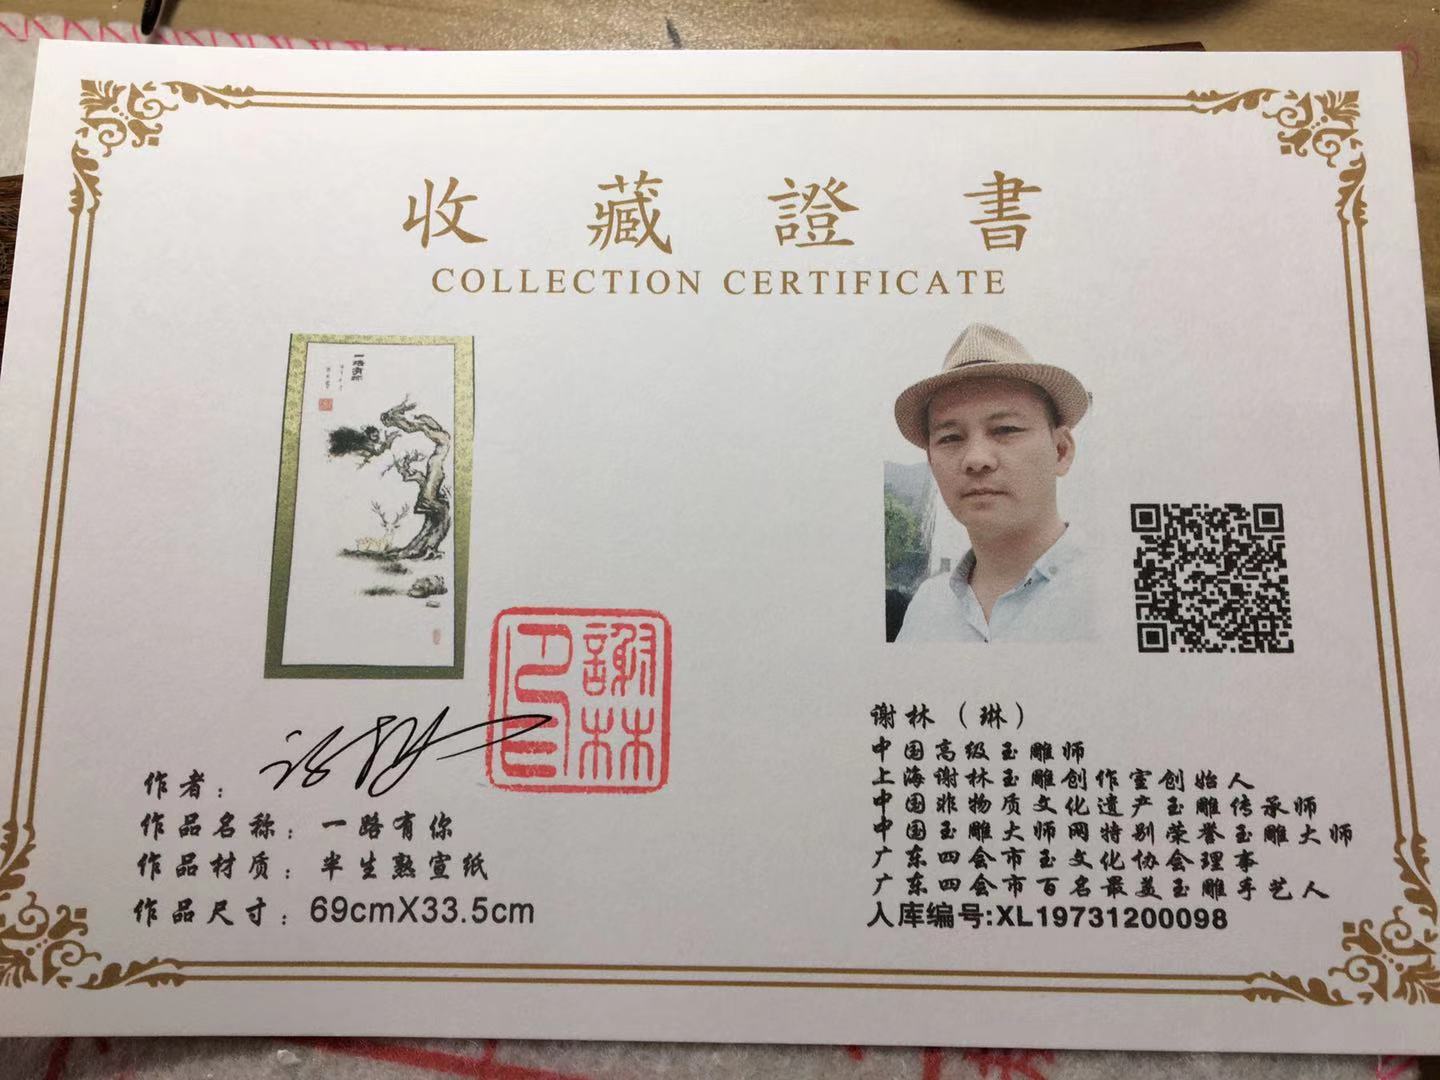 收藏證書
COLLECTION CERTIFICATE
一路有你
謝林
作者：
作品名称：一路有你
作品材质：半生熟宣纸
作品尺寸：69cmX33.5cm
谢林（琳）
中国高级玉雕师
上海谢林玉雕创作室创始人
中国非物质文化遗产玉雕传承师
中国玉雕大师网特别荣誉玉雕大师
广东四会市玉文化协会理事
广东四会市百名最美玉雕手艺人
入库编号:XL19731200098